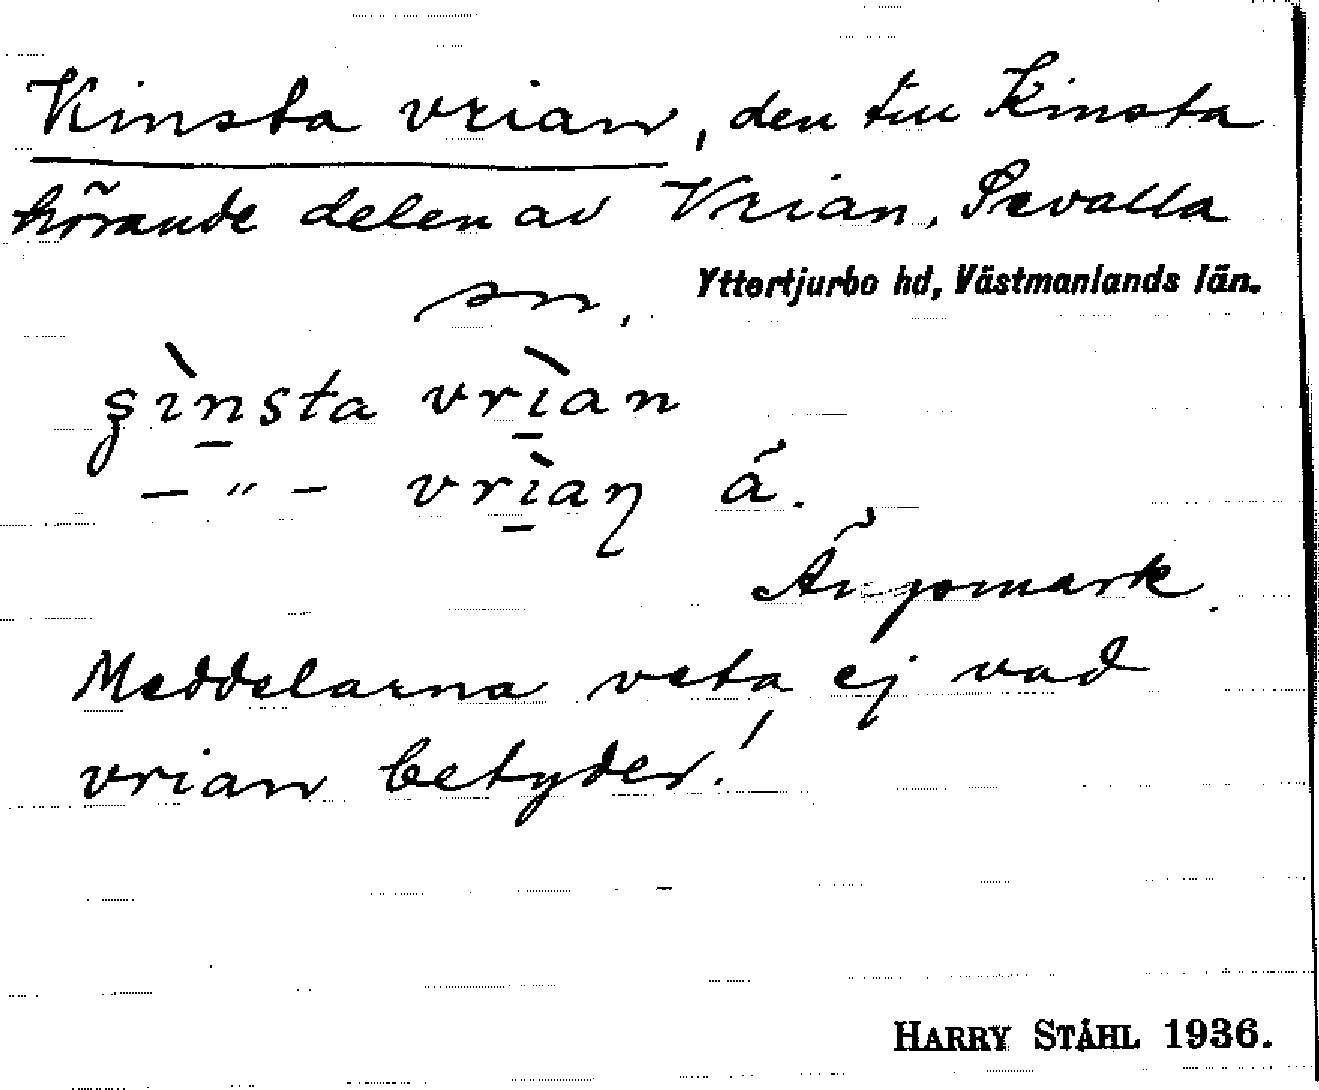 Kinsta vrian, den till Kinsta
hörande delen av Vrian, Sevalla
sn, Yttertjurbo hd, Västmanlands län.
ʂìn̲sta vrì̲an
— " — vrì̲aŋ å.
Ängsmark.
Meddelarna veta ej vad
vrian betyder!
HARRY STÅHL 1936.